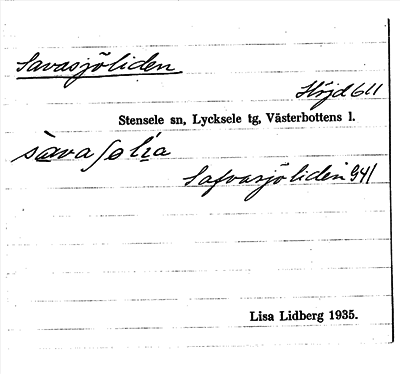 Savasjöliden
Höjd 611
Stensele sn, Lycksele tg, Västerbottens l.
Safvasjöliden 941
Lisa Lidberg 1935.